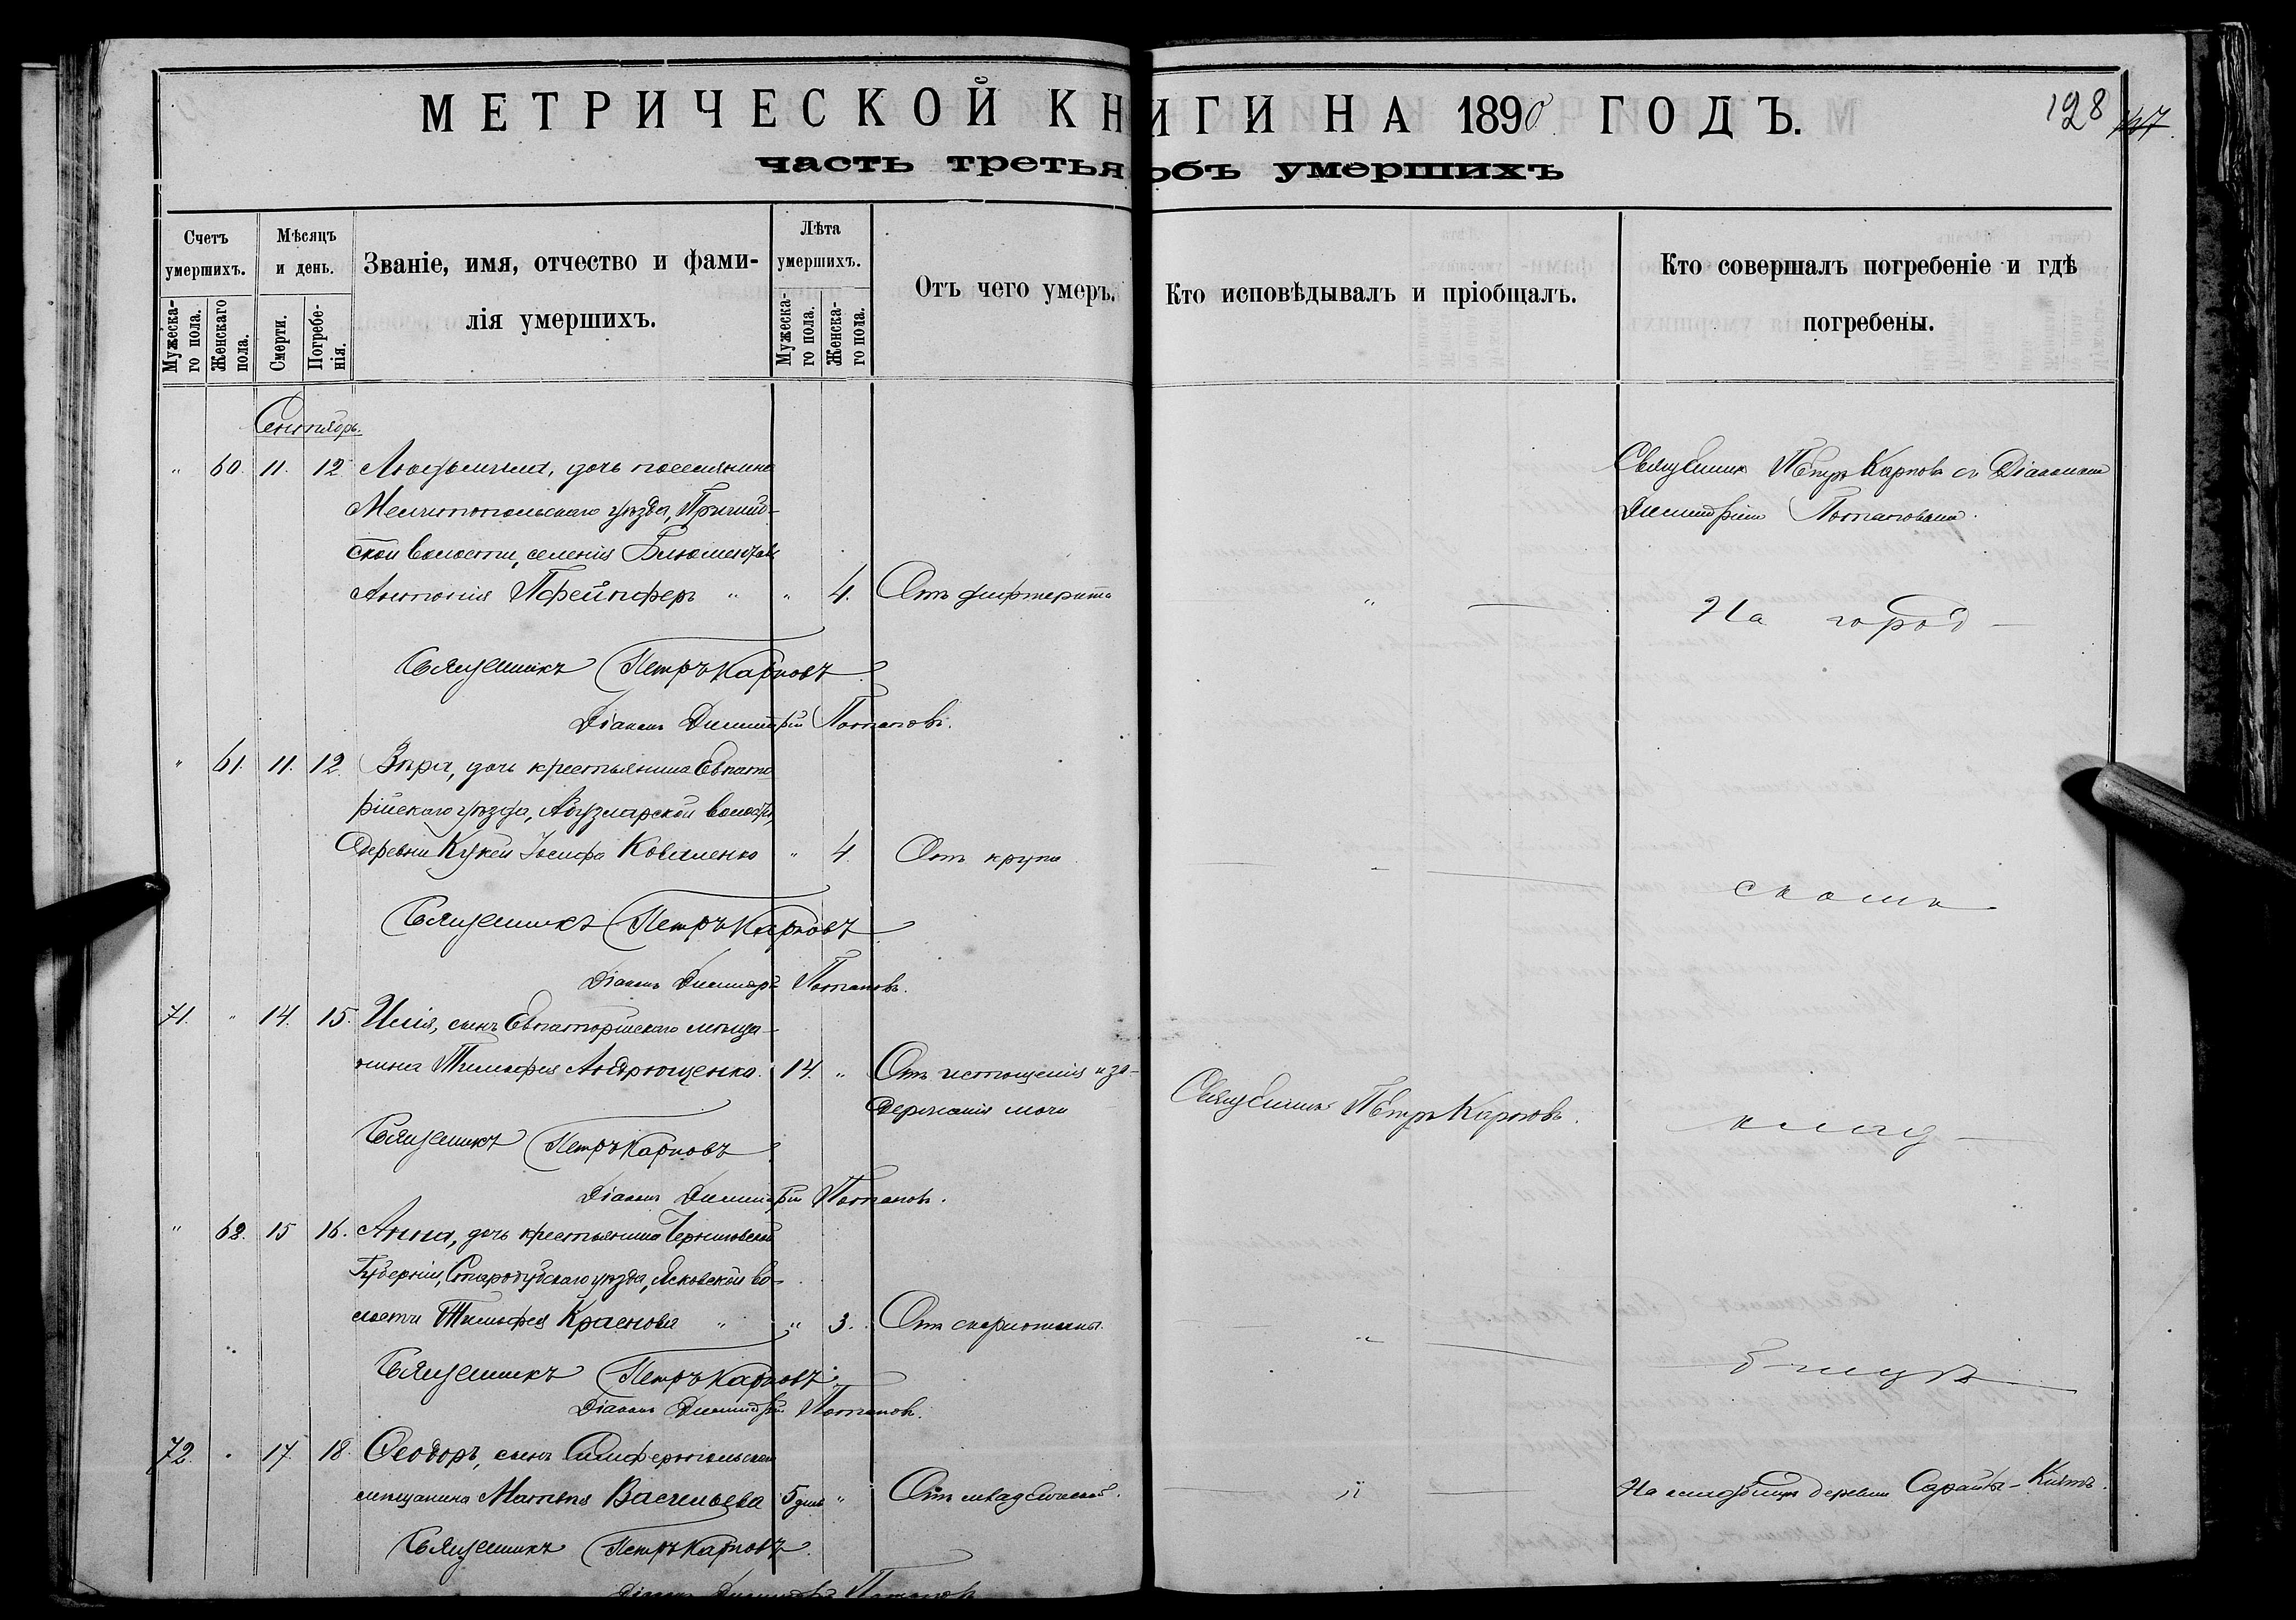 МЕТРИЧЕСКОЙ КНИГИ НА 1890 ГОДЪ.
128
147
часть третья объ умершихъ
Счетъ умершихъ.
Мужеска-го пола.
Женскаго пола.
Мѣсяцъ и день.
Смерти.
Погребе-нія.
Званіе, имя, отчество и фами-
лія умершихъ.
Лѣта умершихъ.
Мужеска-го пола.
Женска-го пола.
Отъ чего умеръ.
Кто исповѣдывалъ и пріобщалъ.
Кто совершалъ погребеніе и гдѣ
погребены.
Сентябрь.
" 60. 11. 12 дочь поселянина
Мелитопольскаго уѣзда, Пришиб-
ской волости, селенія Блюменталь
Антонія Пфейпферъ " " 4. Отъ дифтерита
Священникъ Петръ Карповъ съ Діакономъ
Димитріемъ Потаповымъ.
На город-
Священникъ Петръ Карповъ
Діаконъ Димитрій Потаповъ.
" 61. 11. 12. Вѣра, дочь крестьянина Евпато
рійскаго уѣзда, Абузларской волости,
деревни Іосифа Коваленко " 4. Отъ крупа
скомъ
Священникъ Петръ Карповъ
Діаконъ Димитрій Потаповъ.
71. " 14. 15. Илія, сынъ Евпаторійскаго мѣща-
нина Тимофея Андрющенко. 14. " Отъ истощенія и за-
держанія мочи
Священникъ Петръ Карповъ.
клад-
Священникъ Петръ Карповъ
Діаконъ Димитрій Потаповъ.
" 62. 15 16. Анна, дочь крестьянина Черниговской
Губерніи, Стародубскаго уѣзда, во-
лости Тимофея Краснова " " 3. Отъ скарлатины.
бищѣ
Священникъ Петръ Карповъ
Діаконъ Димитрій Потаповъ.
72. " 17. 18. Ѳеодоръ, сынъ Симферопольскаго
мѣщанина Матвѣя Васильева 5 дней " Отъ младенческой.
На кладбищѣ деревни Сарайлы-Кіятъ.
Священникъ Петръ Карповъ
Діаконъ Димитрій Потаповъ